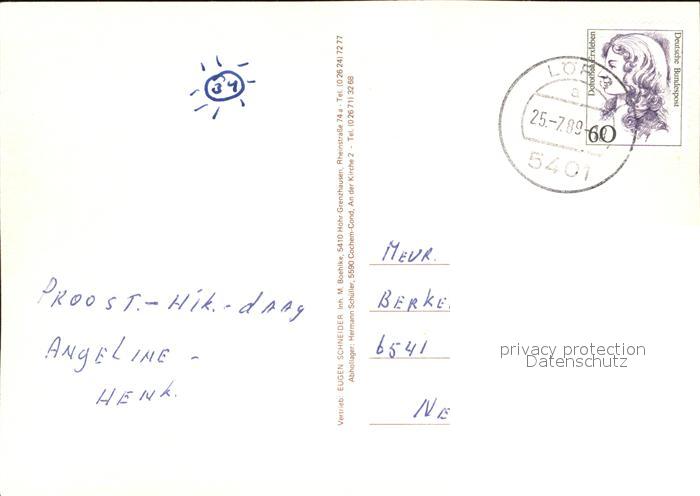 34
PROOST.-HIK.-dAAg
ANGELINE -
HENK.
Vertrieb: EUGEN SCHNEIDER Inh. M. Boehlke, 5410 Höhr-Grenzhausen, Rheinstraße 74 a · Tel. (0 26 24) 72 77
Abhollager: Hermann Schüller, 5590 Cochem-Cond, An der Kirche 2 - Tel. (0 26 71) 32 68
Dorothea Erxleben
Deutsche Bundespost
60
a
25.-7.89
5401
MEVR.
BERKE
6541
NE
privacy protection
Datenschutz